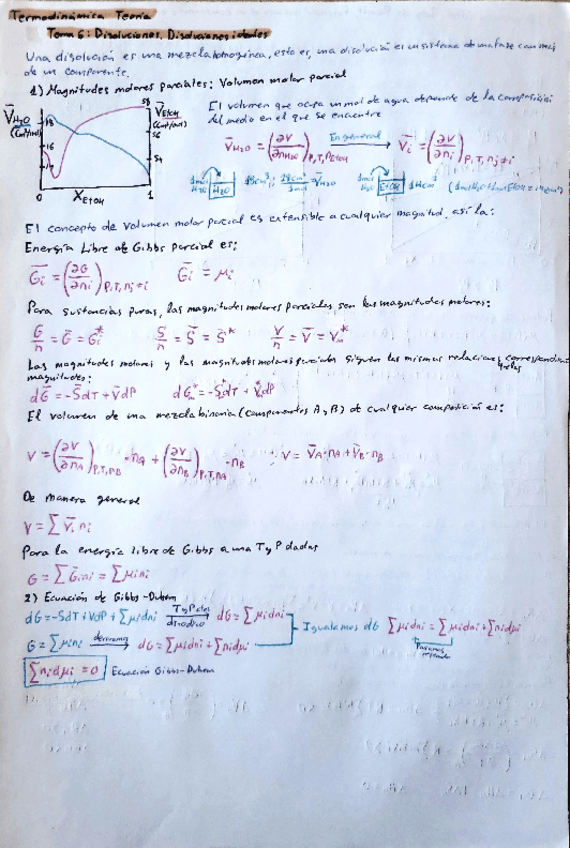 Termodinámica Teoría
Tema 6: Disoluciones. Disoluciones ideales
Una disolución es una mezcla homogénea, esto es, una disolución es un sistema de una fase con más
de un componente.
1) Magnitudes molares parciales: Volumen molar parcial
V̄H₂O (cm³/mol) 18 16 14
V̄EtOH (cm³/mol) 58 56 54
0 XEtOH 1
El volumen que ocupa un mol de agua depende de la composición
del medio en el que se encuentre
V̄H₂O = (∂V/∂nH₂O)P,T,nEtOH En general → V̄i = (∂V/∂ni)P,T,nj≠i
1mol H₂O H₂O 18cm³; 18cm³/1mol = V̄H₂O 1mol H₂O EtOH 14cm³
El concepto de volumen molar parcial es extensible a cualquier magnitud, así la:
Energía Libre de Gibbs parcial es:
Ḡi = (∂G/∂ni)P,T,nj≠i Ḡi = μi
Para sustancias puras, las magnitudes molares parciales son las magnitudes molares:
G/n = Ḡ = Ḡi* S/n = S̄ = S̄* V/n = V̄ = Vm*
Las magnitudes molares y las magnitudes molares parciales siguen las mismas relaciones correspondien
magnitudes:
dḠ = -S̄dT + V̄dP dGm* = -S*dT + V*dP
El volumen de una mezcla binaria (componentes A y B) de cualquier composición es:
V = (∂V/∂nA)P,T,nB · nA + (∂V/∂nB)P,T,nA · nB ; V = V̄A·nA + V̄B·nB
De manera general
V = ∑ V̄i ni
Para la energía libre de Gibbs a una T y P dadas
G = ∑ Ḡi ni = ∑ μi ni
2) Ecuación de Gibbs-Duhem
dG = -SdT + VdP + ∑ μi dni T y P ctes dT=0 dP=0 → dG = ∑ μi dni
Igualamos dG ∑ μi dni = ∑ μi dni + ∑ ni dμi
G = ∑ μi ni derivamos → dG = ∑ μi dni + ∑ ni dμi
Pasamos restando
∑ ni dμi = 0 Ecuación Gibbs-Duhem